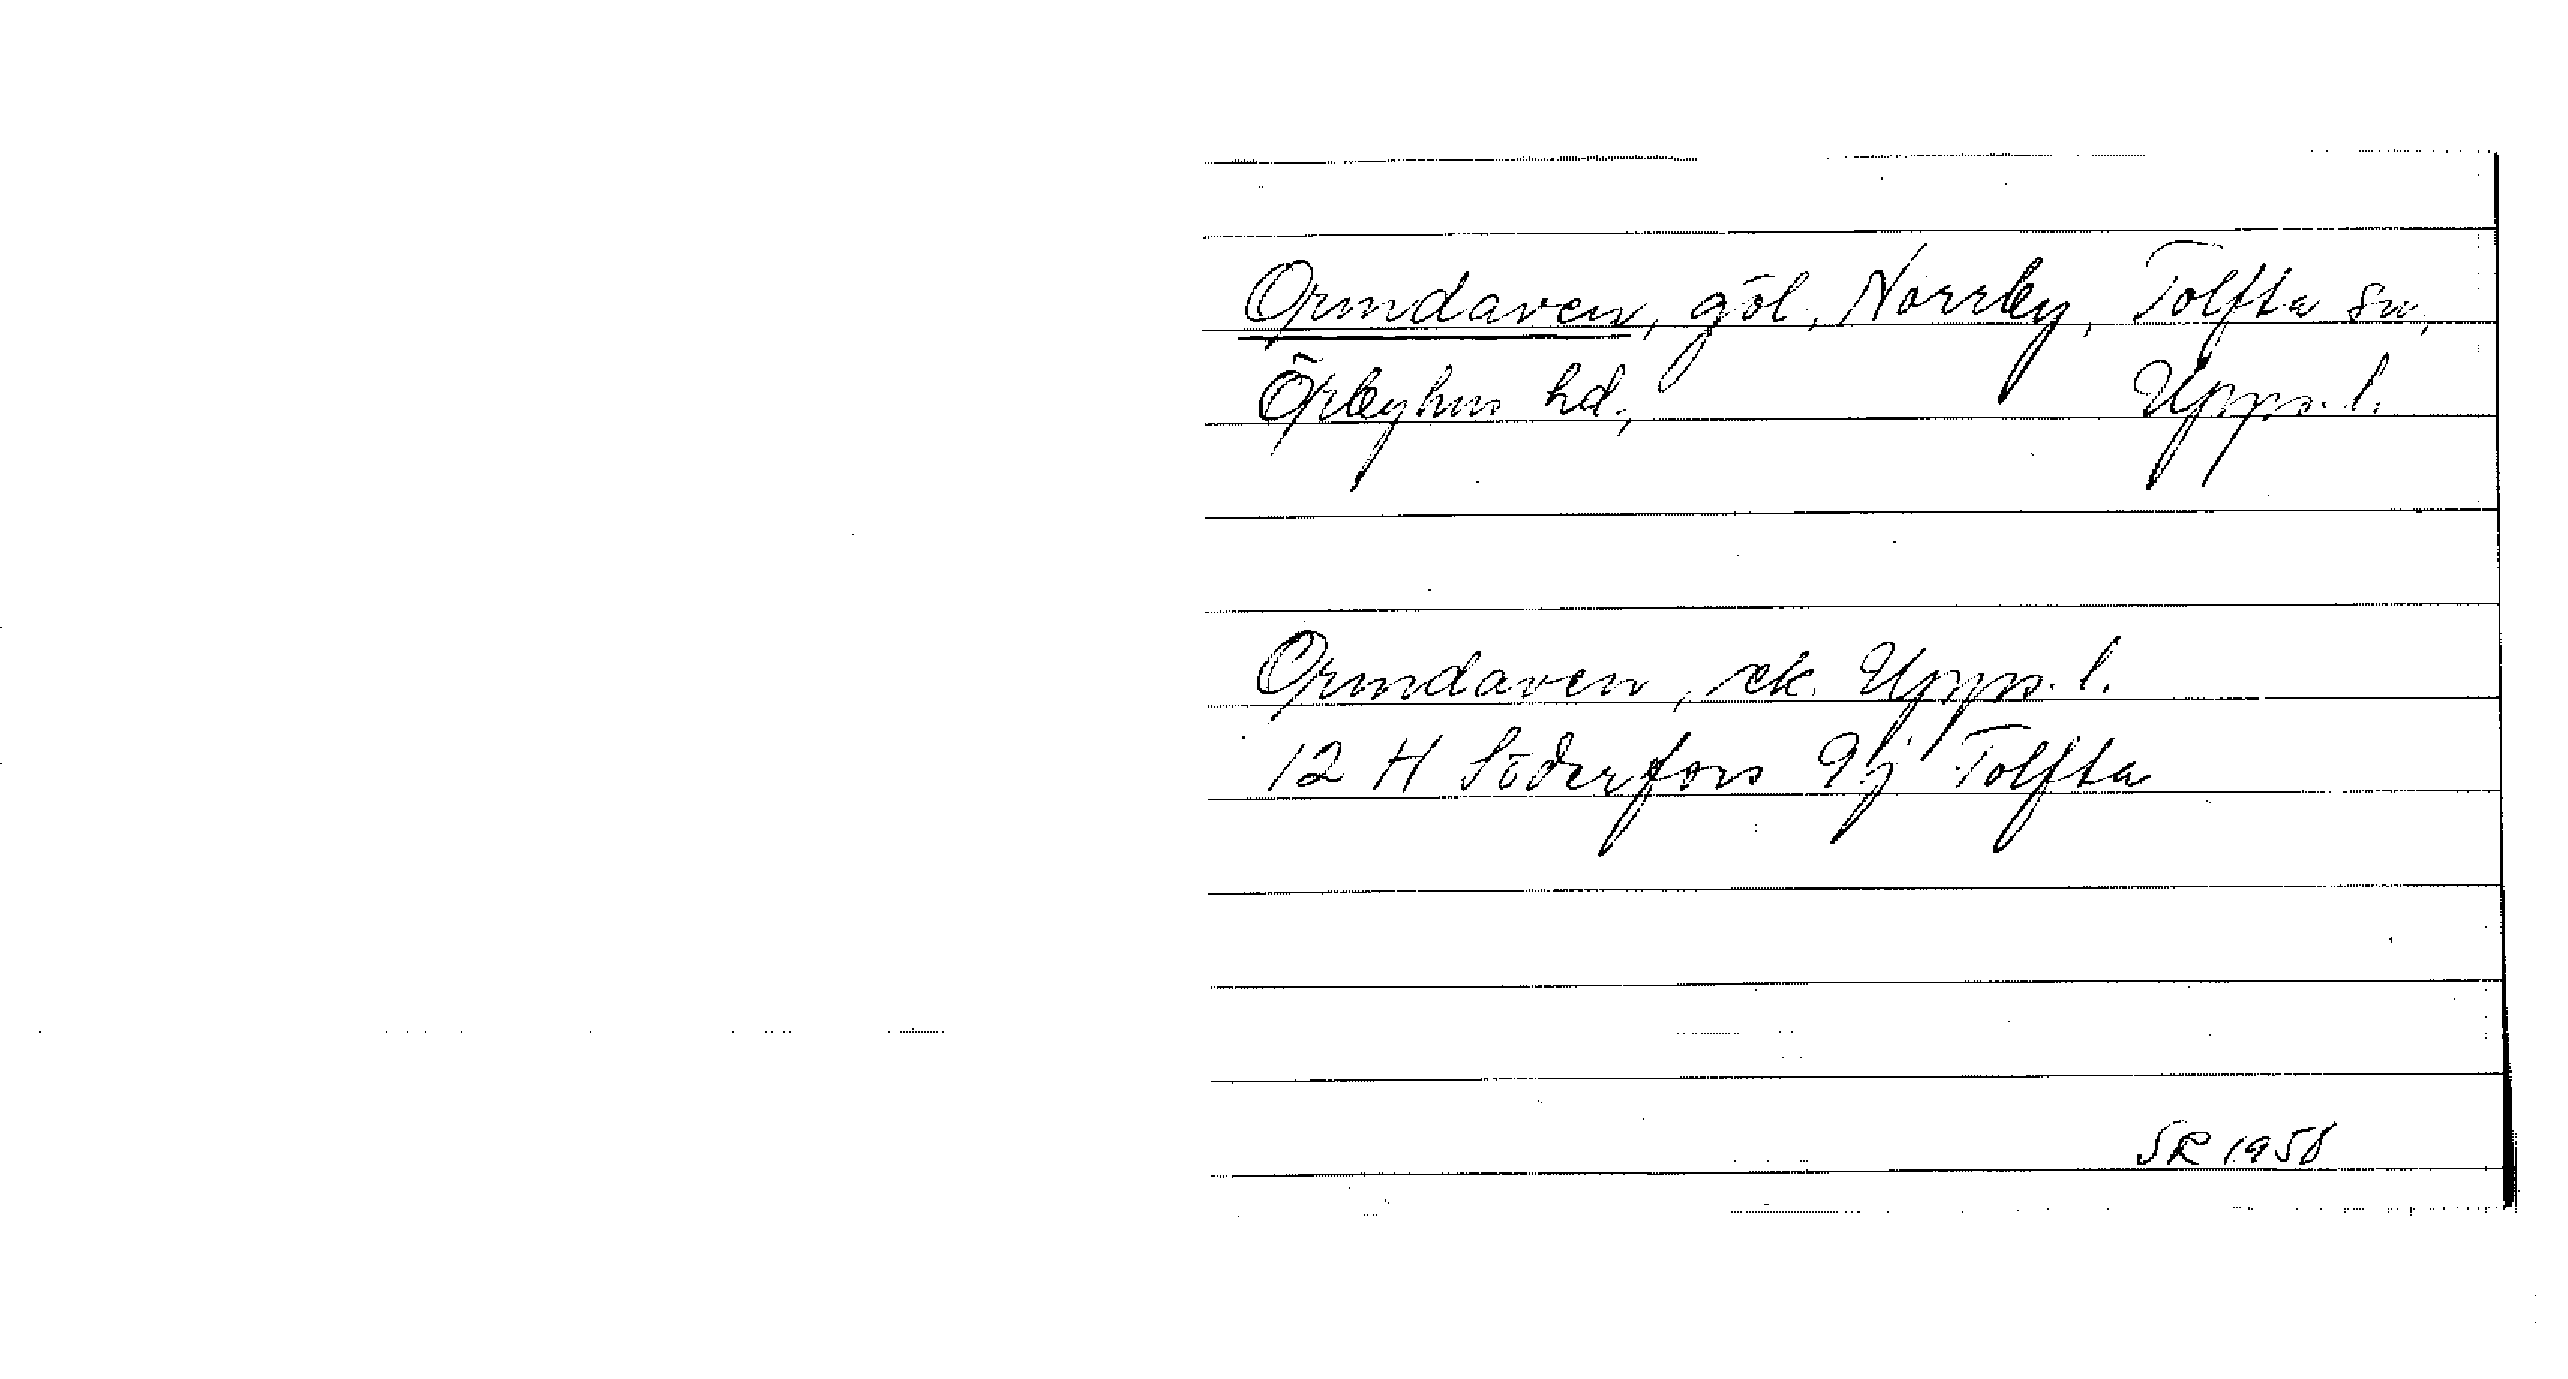 Ormdaven, göl, Norrby, Tolfta sn,
Örbyhus hd., Upps. l.
Ormdaven, ek. Upps. l.
12 H Söderfors 9j Tolfta
SR 1958